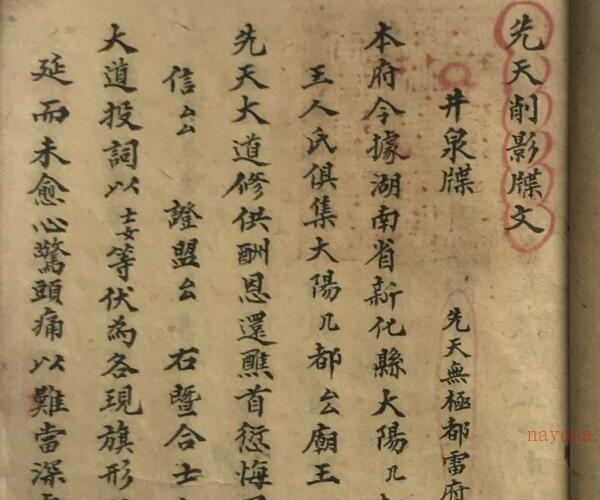 先天削影牒文
井泉牒
先天無極都雷府
本府今據湖南省新化縣大陽几
王人氏俱集大陽几都厶廟王
先天大道修供酬恩還醮首愆悔
信厶厶 證盟厶 右暨合士
大道投詞以士女等伏為各現旗形
延而未愈心驚頭痛以難當深
nayona.